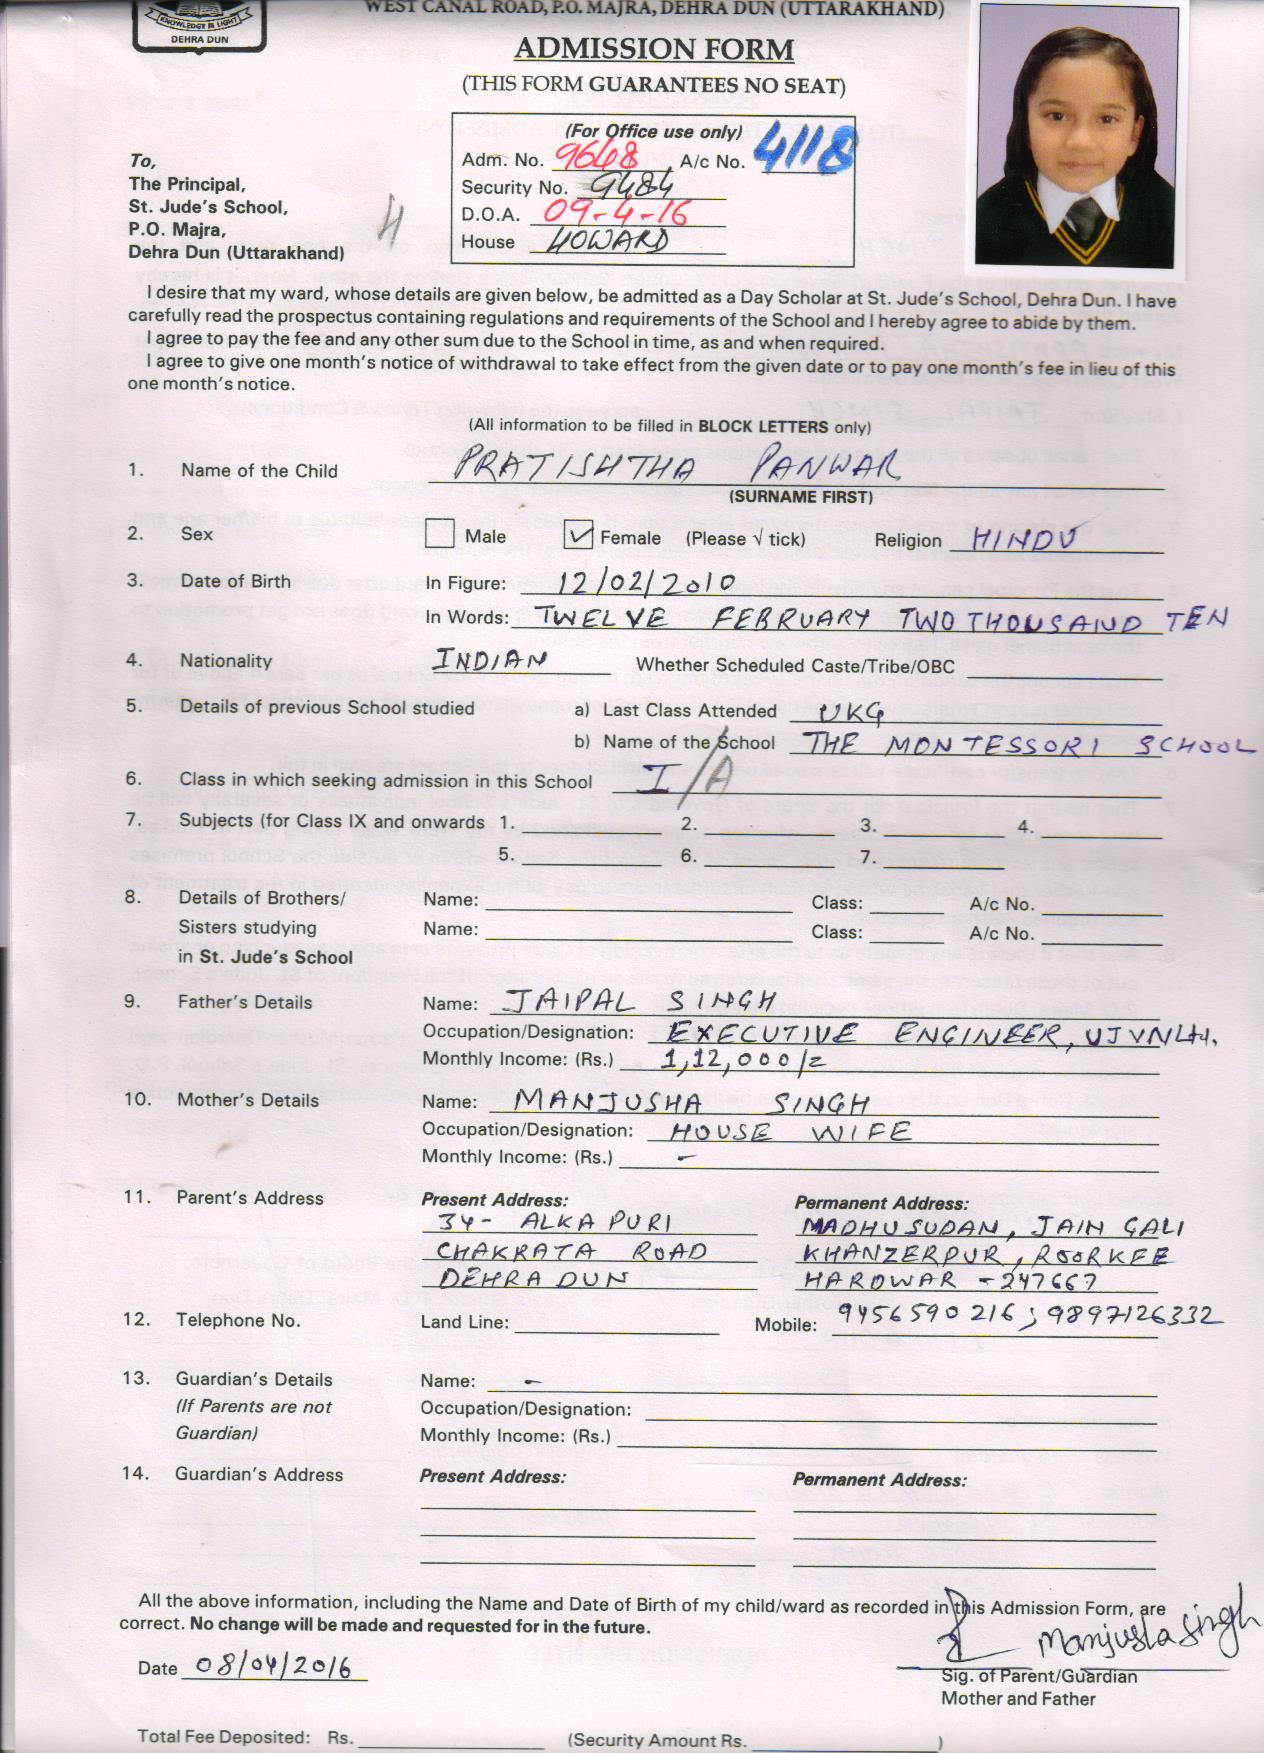 KNOWLEDGE IS LIGHT
DEHRA DUN
WEST CANAL ROAD, P.O. MAJRA, DEHRA DUN (UTTARAKHAND)
ADMISSION FORM
(THIS FORM GUARANTEES NO SEAT)
(For Office use only)
Adm. No. 9648 A/c No. 4118
Security No. 9484
D.O.A. 09-4-16
House HOWARD
To,
The Principal,
St. Jude's School,
P.O. Majra,
Dehra Dun (Uttarakhand)
H
I desire that my ward, whose details are given below, be admitted as a Day Scholar at St. Jude's School, Dehra Dun. I have
carefully read the prospectus containing regulations and requirements of the School and I hereby agree to abide by them.
I agree to pay the fee and any other sum due to the School in time, as and when required.
I agree to give one month's notice of withdrawal to take effect from the given date or to pay one month's fee in lieu of this
one month's notice.
(All information to be filled in BLOCK LETTERS only)
1. Name of the Child PRATISHTHA PANWAR
(SURNAME FIRST)
2. Sex Male Female (Please √ tick) Religion HINDU
3. Date of Birth In Figure: 12/02/2010
In Words: TWELVE FEBRUARY TWO THOUSAND TEN
4. Nationality INDIAN Whether Scheduled Caste/Tribe/OBC
5. Details of previous School studied a) Last Class Attended UKG
b) Name of the School THE MONTESSORI SCHOOL
6. Class in which seeking admission in this School I/A
7. Subjects (for Class IX and onwards 1. 2. 3. 4.
5. 6. 7.
8. Details of Brothers/ Name: Class: A/c No.
Sisters studying Name: Class: A/c No.
in St. Jude's School
9. Father's Details Name: JAIPAL SINGH
Occupation/Designation: EXECUTIVE ENGINEER, UJVNLtd.
Monthly Income: (Rs.) 1,12,000/=
10. Mother's Details Name: MANJUSHA SINGH
Occupation/Designation: HOUSE WIFE
Monthly Income: (Rs.) -
11. Parent's Address Present Address: Permanent Address:
34- ALKAPURI MADHUSUDAN, JAIN GALI
CHAKRATA ROAD KHANZERPUR, ROORKEE
DEHRADUN HARDWAR - 247667
12. Telephone No. Land Line: Mobile: 9456590216; 9897126332
13. Guardian's Details Name: -
(If Parents are not Occupation/Designation:
Guardian) Monthly Income: (Rs.)
14. Guardian's Address Present Address: Permanent Address:
All the above information, including the Name and Date of Birth of my child/ward as recorded in this Admission Form, are
correct. No change will be made and requested for in the future.
Manjusha Singh
Date 08/04/2016
Sig. of Parent/Guardian
Mother and Father
Total Fee Deposited: Rs. (Security Amount Rs. )